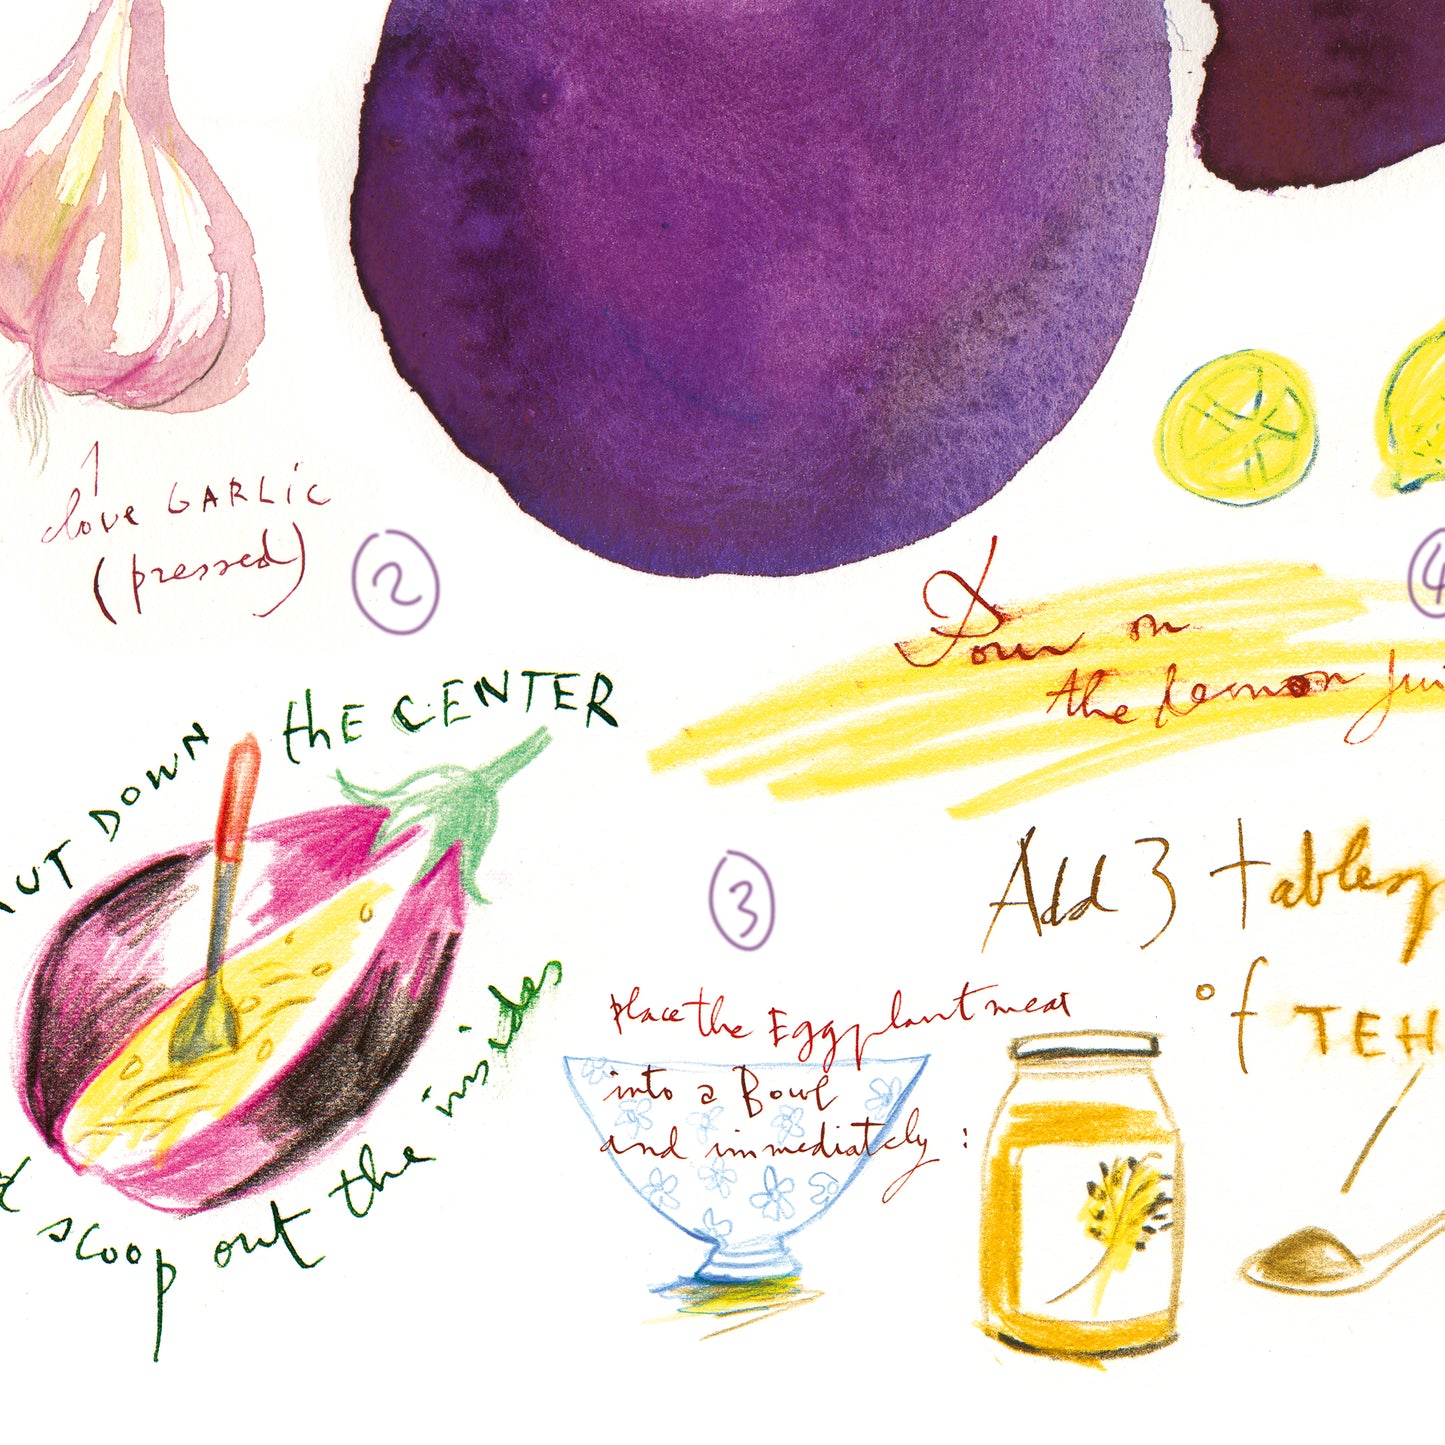 1
clove GARLiC
(pressed)
2
CUT DOWN the CENTER
& scoop out the insides
3
place the Eggplant meat
into a Bowl
and immediately :
4
Pour on
the Lemon jui
Add 3 tablesp
of TEH